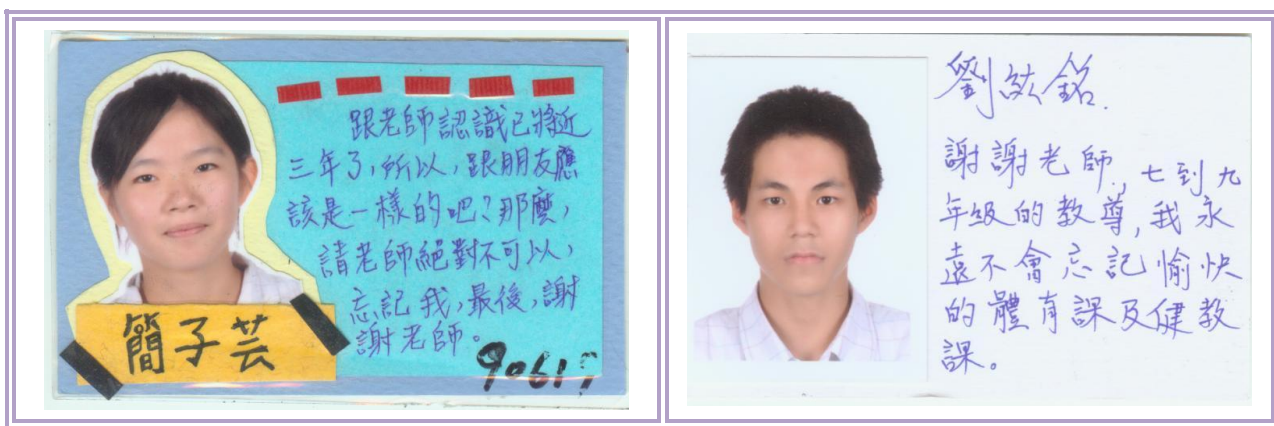 跟老師認識已將近
三年了,所以,跟朋友應
該是一樣的吧?那麼,
請老師絕對不可以,
忘記我,最後,謝
謝老師。
簡子芸
劉紘銘.
謝謝老師,七到九
年級的教導,我永
遠不會忘記愉快
的體育課及健教
課。